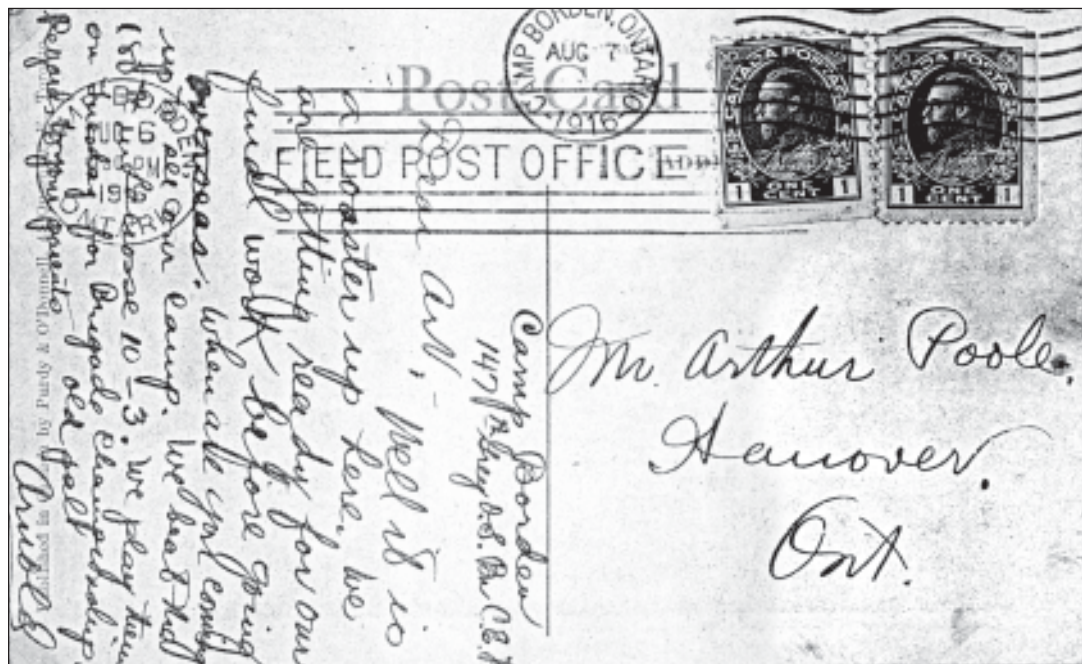 CAMP BORDEN, ONTARIO
AUG 7
1916
Post Card
FIELD POST OFFICE
CANADA POSTAGE
1 ONE CENT 1
CANADA POSTAGE
1 ONE CENT 1
Mr. Arthur Poole.
Hanover.
Ont.
Camp Borden
147th Grey O.S. Bn C.E.F
Dear Art. Well it is
a roaster up here. We
are getting ready for our
final work before going
overseas. When are you coming
up to see our camp. We beat the
at lacrosse 10-3. We play them
on for Brigade championship.
Regards to your
old pal
by Purdy & O'Donnell